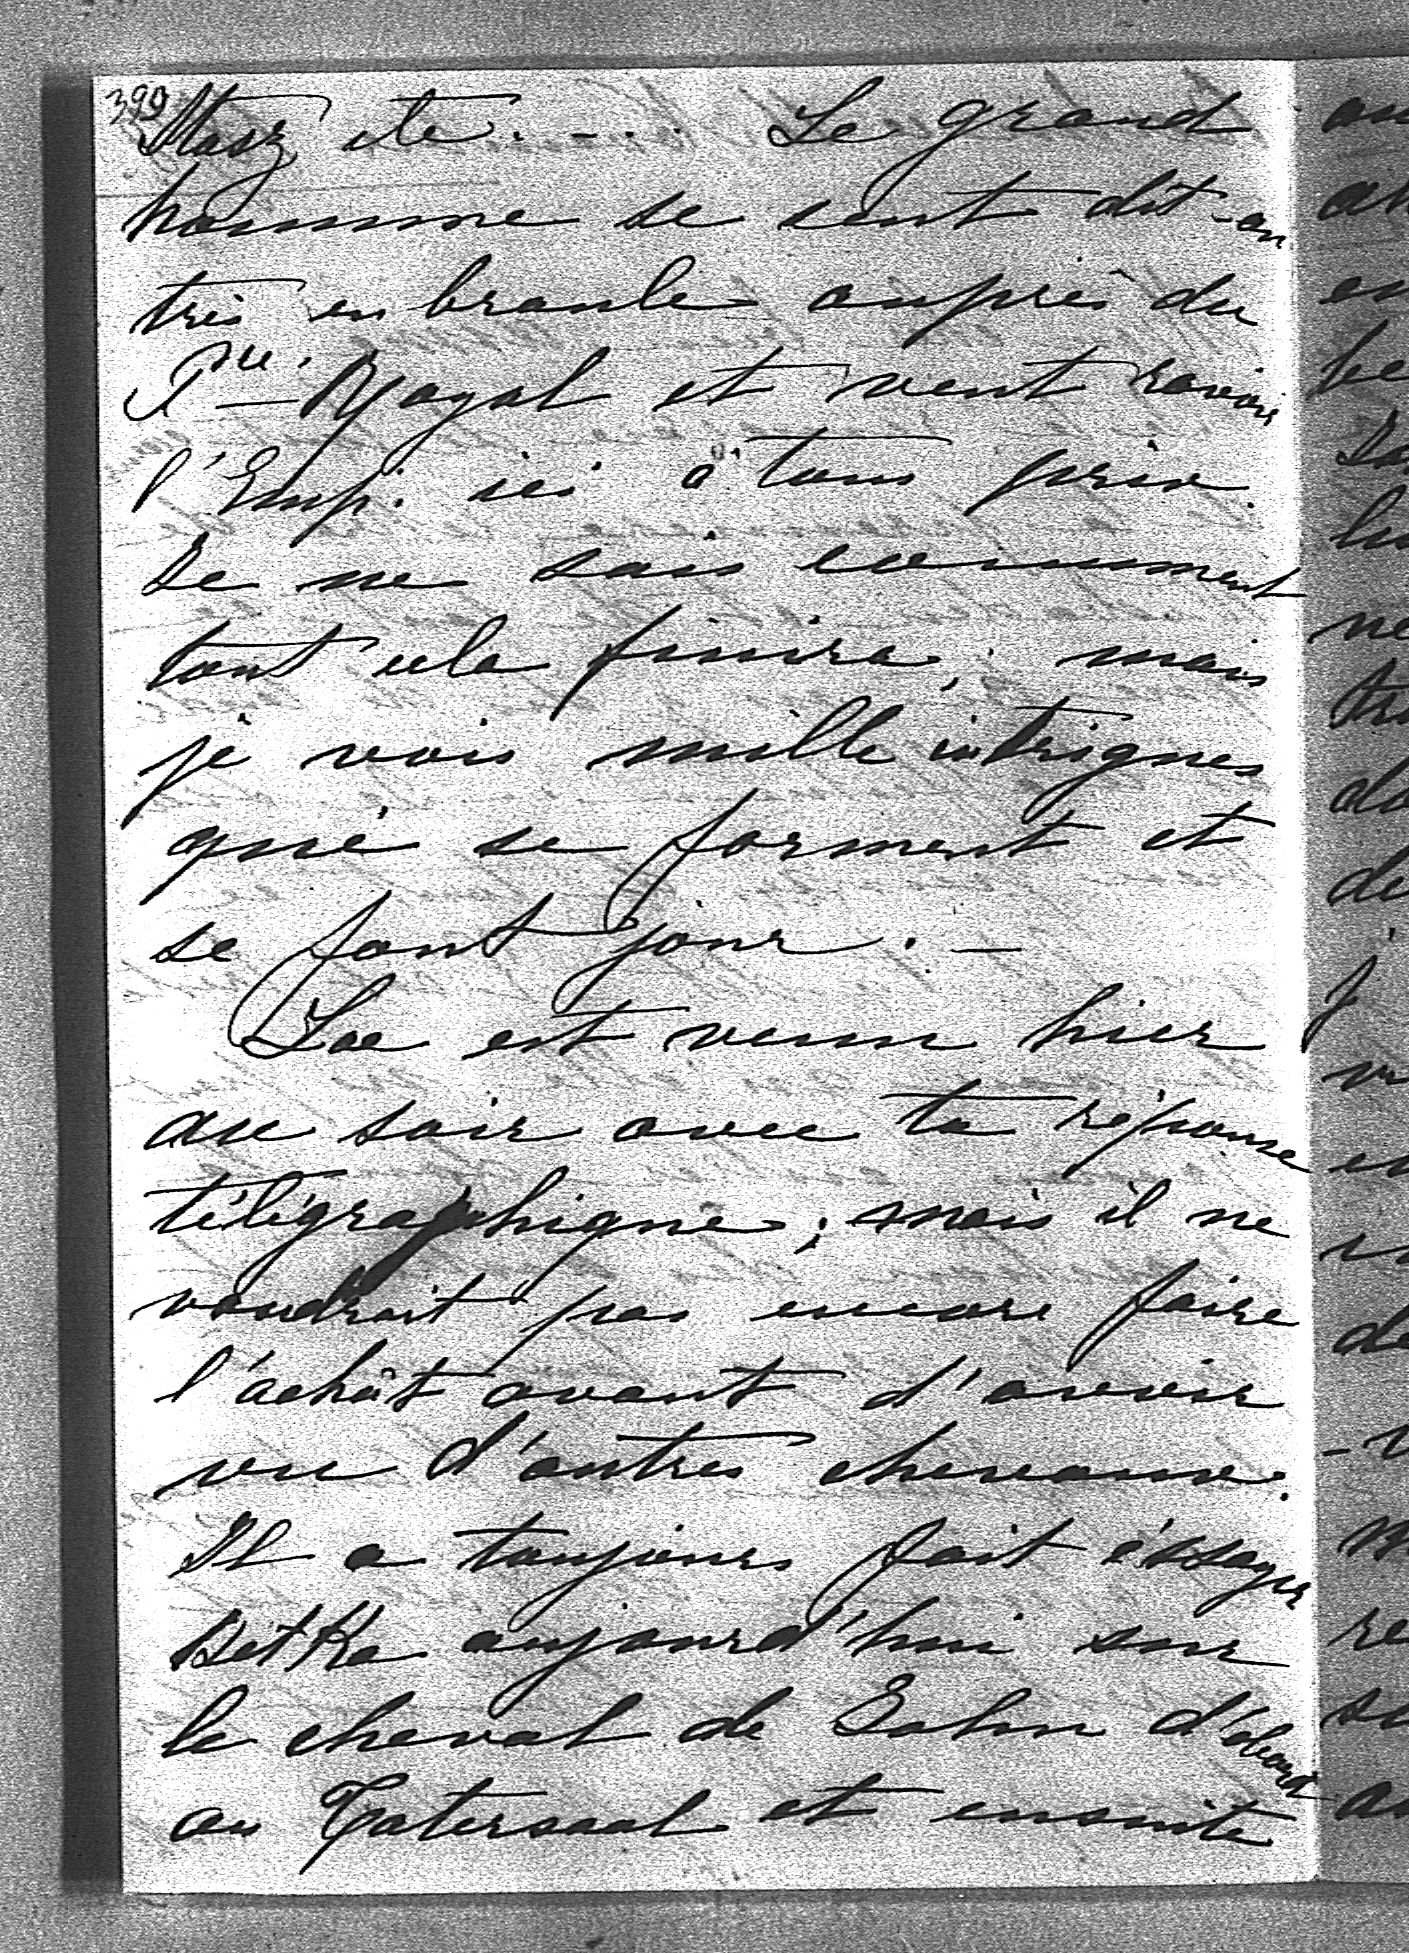 390
Stasz etc. - . . Le grand
homme se sent dit-on
très en branle auprès du
Pce. Royal et veut ravoir
l'Emp. ici à tous prix.
Je ne sais comment
tout cela finira, mais
je vois mille intrigues
qui se forment et
se font jour. —
Loe est venu hier
au soir avec ta réponse
télégraphique; mais il ne
voudrait pas encore faire
l'achât avant d'avoir
vu d'autres chevaux.
Il a toujours fait éssayer
Betka aujourd'hui sur
le cheval de Sohn d'abord
au Tatersaal et ensuite